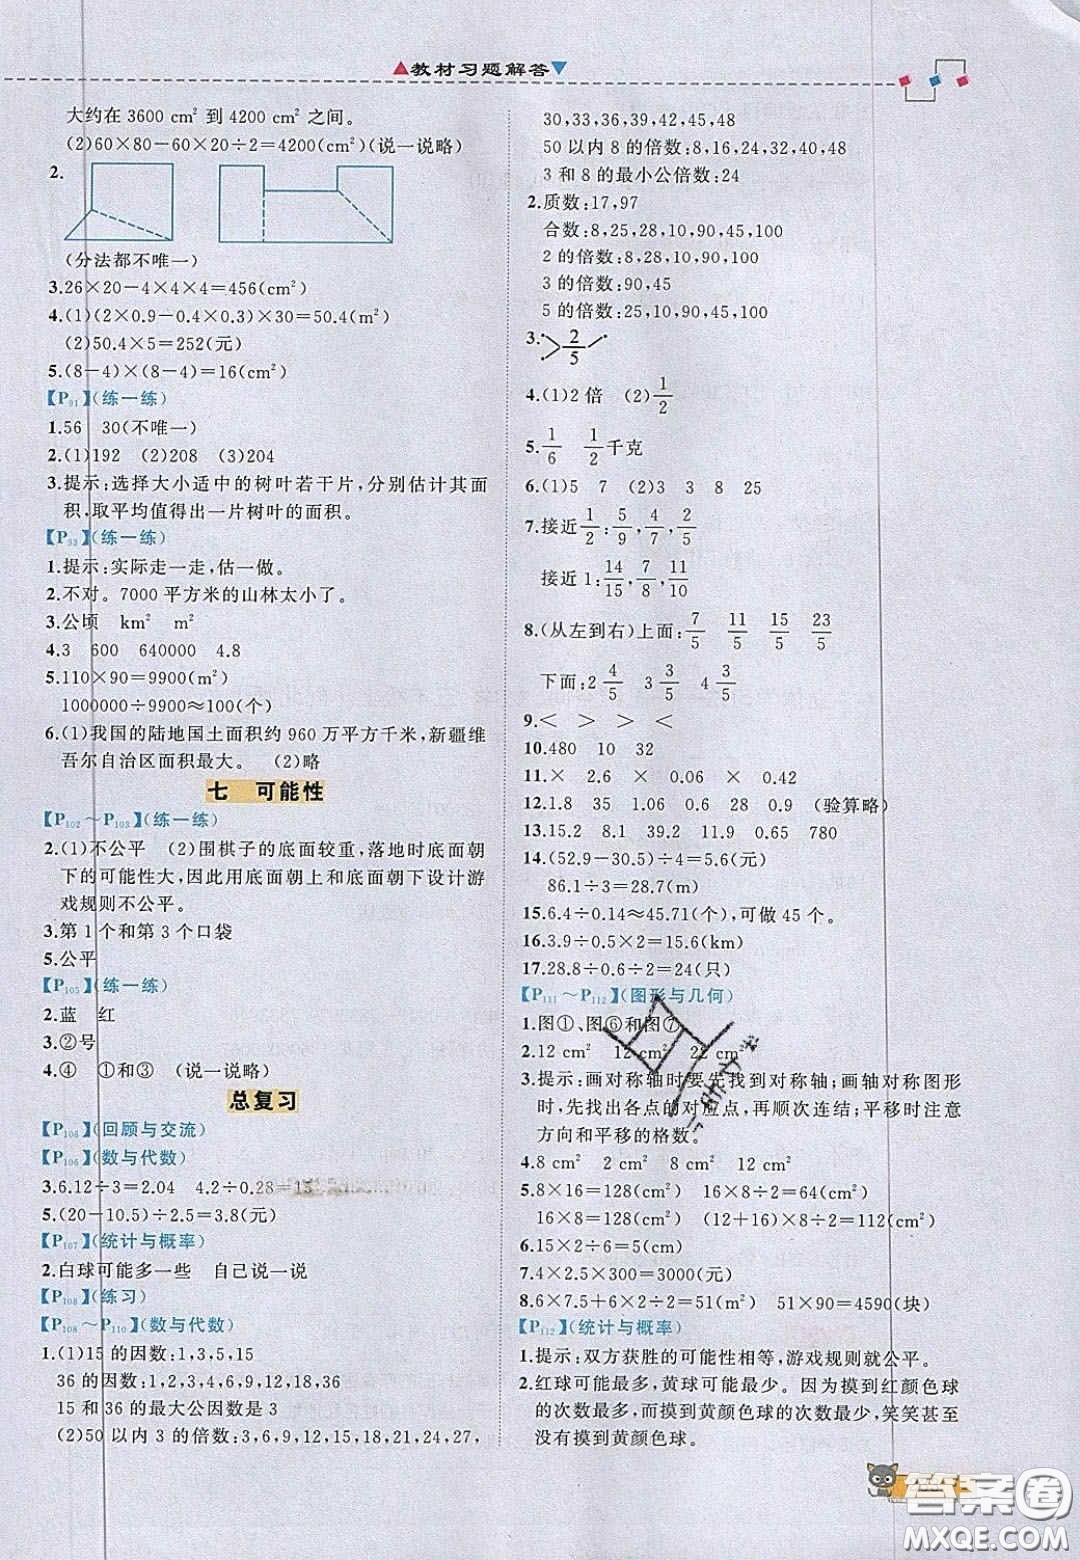 教材习题解答
大约在 3600 cm² 到 4200 cm² 之间。
(2)60×80-60×20÷2=4200(cm²)(说一说略)
2.
(分法都不唯一)
3.26×20-4×4×4=456(cm²)
4.(1)(2×0.9-0.4×0.3)×30=50.4(m²)
(2)50.4×5=252(元)
5.(8-4)×(8-4)=16(cm²)
【P91】(练一练)
1.56 30(不唯一)
2.(1)192 (2)208 (3)204
3.提示:选择大小适中的树叶若干片,分别估计其面
积,取平均值得出一片树叶的面积。
【P93】(练一练)
1.提示:实际走一走,估一做。
2.不对。7000 平方米的山林太小了。
3.公顷 km² m²
4.3 600 640000 4.8
5.110×90=9900(m²)
1000000÷9900≈100(个)
6.(1)我国的陆地国土面积约 960 万平方千米,新疆维
吾尔自治区面积最大。 (2)略
七 可能性
【P102～P103】(练一练)
2.(1)不公平 (2)围棋子的底面较重,落地时底面朝
下的可能性大,因此用底面朝上和底面朝下设计游
戏规则不公平。
3.第 1 个和第 3 个口袋
5.公平
【P105】(练一练)
2.蓝 红
3.②号
4.④ ①和③ (说一说略)
总复习
【P106】(回顾与交流)
【P106】(数与代数)
3.6.12÷3=2.04 4.2÷0.28=15
5.(20-10.5)÷2.5=3.8(元)
【P107】(统计与概率)
2.白球可能多一些 自己说一说
【P108】(练习)
【P108～P110】(数与代数)
1.(1)15 的因数:1,3,5,15
36 的因数:1,2,3,4,6,9,12,18,36
15 和 36 的最大公因数是 3
(2)50 以内 3 的倍数:3,6,9,12,15,18,21,24,27,
30,33,36,39,42,45,48
50 以内 8 的倍数:8,16,24,32,40,48
3 和 8 的最小公倍数:24
2.质数:17,97
合数:8,25,28,10,90,45,100
2 的倍数:8,28,10,90,100
3 的倍数:90,45
5 的倍数:25,10,90,45,100
3. 2/5
4.(1)2 倍 (2)1/2
5.1/6 1/2千克
6.(1)5 7 (2)3 3 8 25
7.接近1/2:5/9,4/7,2/5
接近 1:14/15,7/8,10/11
8.(从左到右)上面:7/5 11/5 15/5 23/5
下面:2 4/5 3 3/5 4 3/5
9.< > > <
10.480 10 32
11.× 2.6 × 0.06 × 0.42
12.1.8 35 1.06 0.6 28 0.9 (验算略)
13.15.2 8.1 39.2 11.9 0.65 780
14.(52.9-30.5)÷4=5.6(元)
86.1÷3=28.7(m)
15.6.4÷0.14≈45.71(个),可做 45 个。
16.3.9÷0.5×2=15.6(km)
17.28.8÷0.6÷2=24(只)
【P111～P112】(图形与几何)
1.图①、图⑥和图⑦
2.12 cm² 12 cm² 22 cm²
3.提示:画对称轴时要先找到对称轴;画轴对称图形
时,先找出各点的对应点,再顺次连结;平移时注意
方向和平移的格数。
4.8 cm² 2 cm² 8 cm² 12 cm²
5.8×16=128(cm²) 16×8=128(cm²)
16×8=128(cm²) (12+16)×8÷2=112(cm²)
6.15×2÷6=5(cm)
7.4×2.5×300=3000(元)
8.6×7.5+6×2÷2=51(m²) 51×90=4590(块)
【P112】(统计与概率)
1.提示:双方获胜的可能性相等,游戏规则就公平。
2.红球可能最多,黄球可能最少。因为摸到红颜色球
的次数最多,而摸到黄颜色球的次数最少,笑笑甚至
没有摸到黄颜色球。
答案圈
MXQE.COM